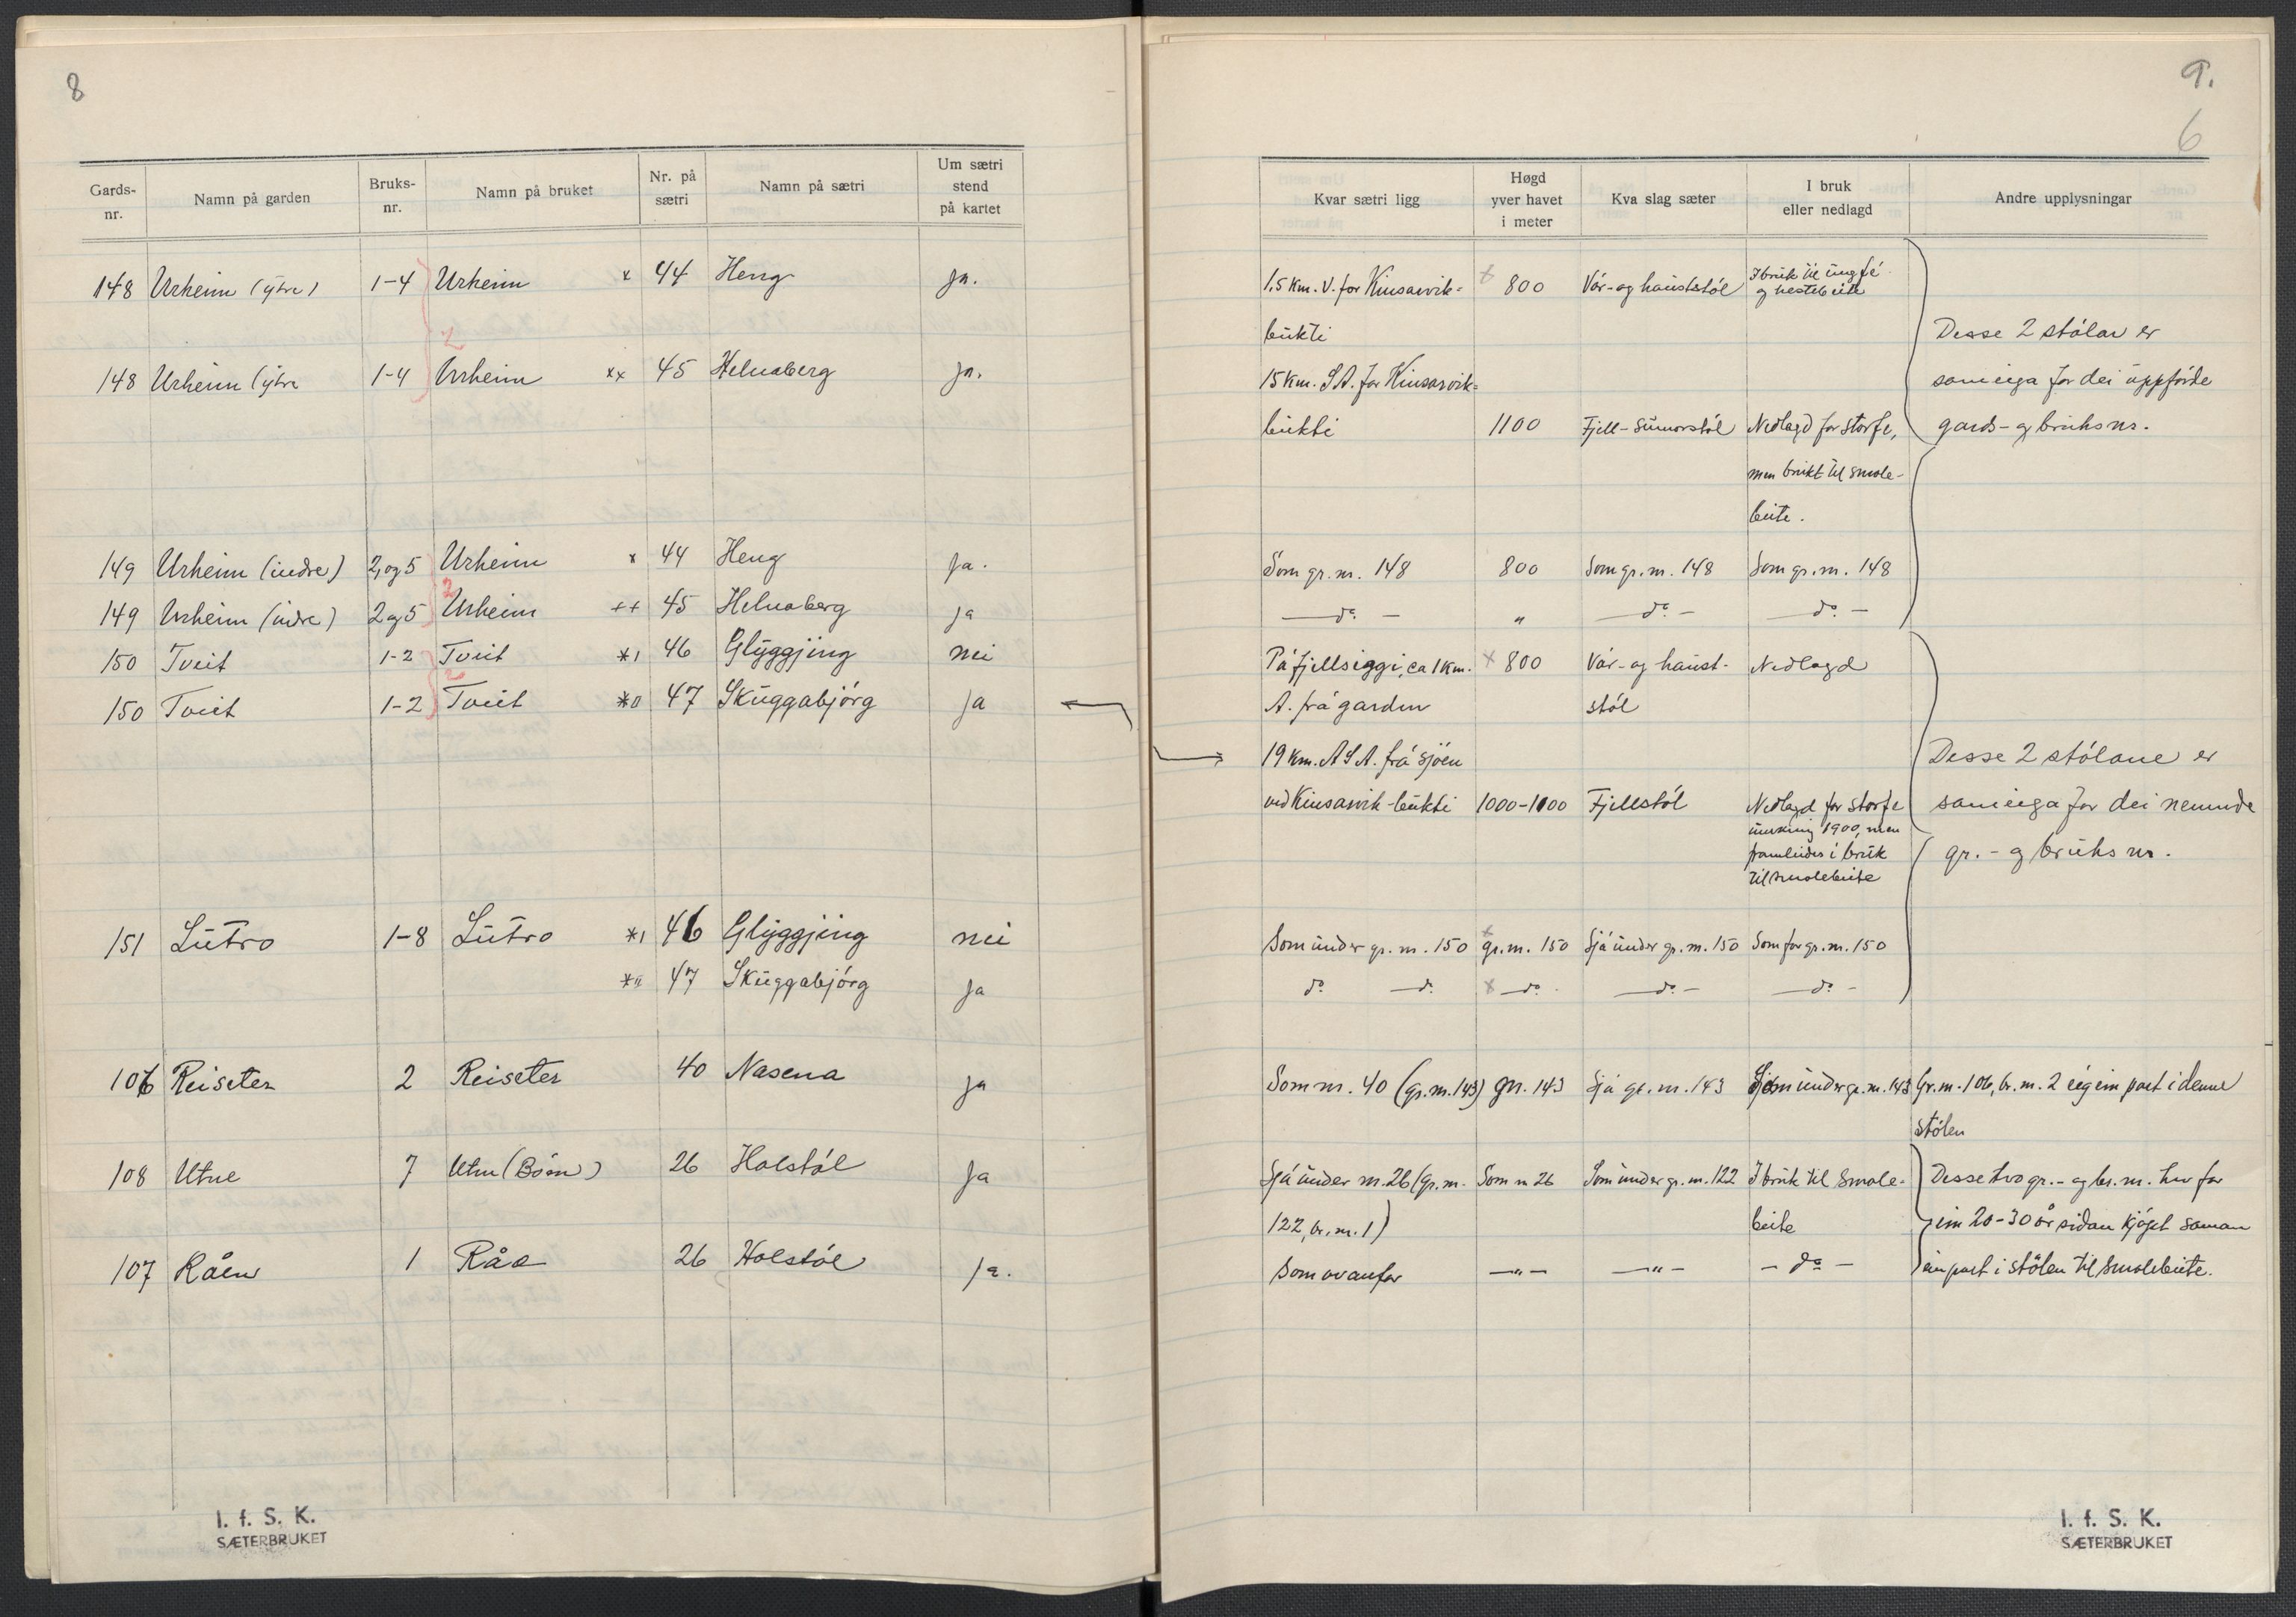 8
Gards-nr. Namn på garden Bruks-nr. Namn på bruket Nr. på sætri Namn på sætri Um sætri stend på kartet
148 Urheim (ytre) 1-4 Urheim x 44 Heng ja.
2
148 Urheim (ytre 1-4 Urheim xx 45 Helnaberg ja.
149 Urheim (indre) 2, og 5 Urheim x 44 Heng ja.
2
149 Urheim (indre) 2 og 5 Urheim ++ 45 Helnaberg ja
150 Tveit 1-2 Tveit *1 46 Glyggjing nei
2
150 Tveit 1-2 Tveit *11 47 Skuggabjörg ja
151 Lutro 1-8 Lutro *1 46 Glyggjing nei
*11 47 Skuggabjörg ja
106 Reiseter 2 Reiseter 40 Nasena ja
108 Utne 7 Utne (Böen) 26 Holstöl ja
107 Råen 1 Råo 26 Holstöl ja.
I. f. S. K.
SÆTERBRUKET
9.
6
Kvar sætri ligg Høgd yver havet i meter Kva slag sæter I bruk eller nedlagd Andre upplysningar
1,5 km. V. for Kinsarvik= x 800 Vår- og haustestöl I bruk til ungfé
og hestebeite
bukti Desse 2 stölar er
15 km. S.A. for Kinsarvik= sameiga for dei uppförde
bukti 1100 Fjell-sumorstöl Nedlagd for storfe, gards- og bruksnr.
men brukt til smale-
beite.
Som gr. nr. 148 800 Som gr. nr. 148 Som gr. nr. 148
— do. — " — do. — — do. —
På fjellseggi, ca 1 km. x 800 Vår- og haust- Nedlagd
A. frå garden stöl
19 km. A S A. frå sjöen Desse 2 stölane er
ved Kinsarvik-bukti 1000-1100 Fjellstöl Nedlagd for storfe sameiga for dei nemnde
umkring 1900, men
framleides i bruk gr. - og bruks nr.
til smalebeite
Som under gr. nr. 150 x gr. nr. 150 Sjå under gr. nr. 150 Som for gr. nr. 150
do. — do. x — do. — do. — — do. —
Som nr. 40 (gr. nr. 143) gr. 143 Sjå gr. nr. 143 Som under gr. nr. 143 Gr. nr. 106, br. nr. 2 eig ein part i denne
stölen
Sjå under nr. 26 (gr. nr. Som nr 26 Som under gr. nr. 122 I bruk til smale- Desse tvo gr.- og br. nr. hev for
122, br. nr. 1) beite ein 20-30 år sidan kjöpt saman
Som ovanfor — " — — " — — do — ein part i stölen til smalebeite.
I. f. S. K.
SÆTERBRUKET